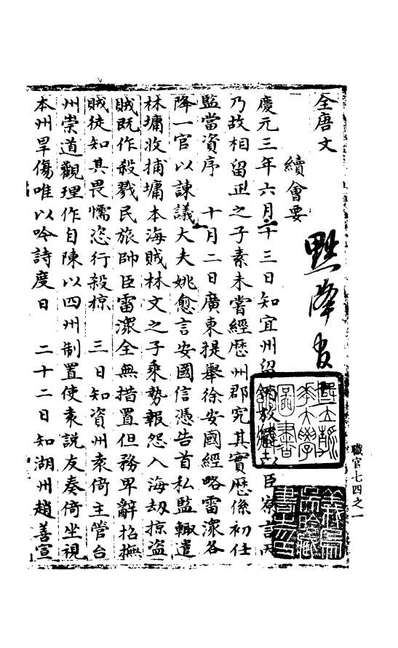 全唐文
續會要
黜降官
慶元三年六月十三日知宜州
以臣寮言丙
乃故相留正之子素未嘗經歷州郡究其實歷係初任
監當資序 十月二日廣東提舉徐安國經略雷潨各
降一官以諫議大夫姚愈言安國信憑告首私監輙遣
林墉收捕墉本海賊林文之子乘勢報怨入海刼掠盜
賊既作殺戮民旅帥臣雷潨全無措置但務卑辭招撫
賊徒知其畏懦恣行殺掠 三日知資州袁倚主管台
州崇道觀理作自陳以四州制置使袁説友奏倚坐視
本州旱傷唯以吟詩度日 二十二日知湖州趙善宣
職官七四之一
國立浙江大學圖書